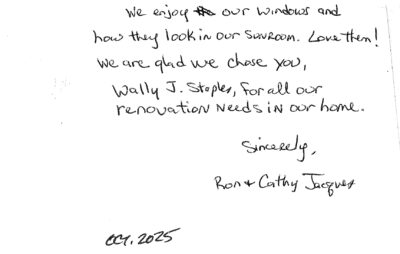 We enjoy our windows and
how they look in our sunroom. Love them!
We are glad we chose you,
Wally J. Staples, for all our
renovation needs in our home.
Sincerely,
Ron & Cathy Jacques
Oct. 2025